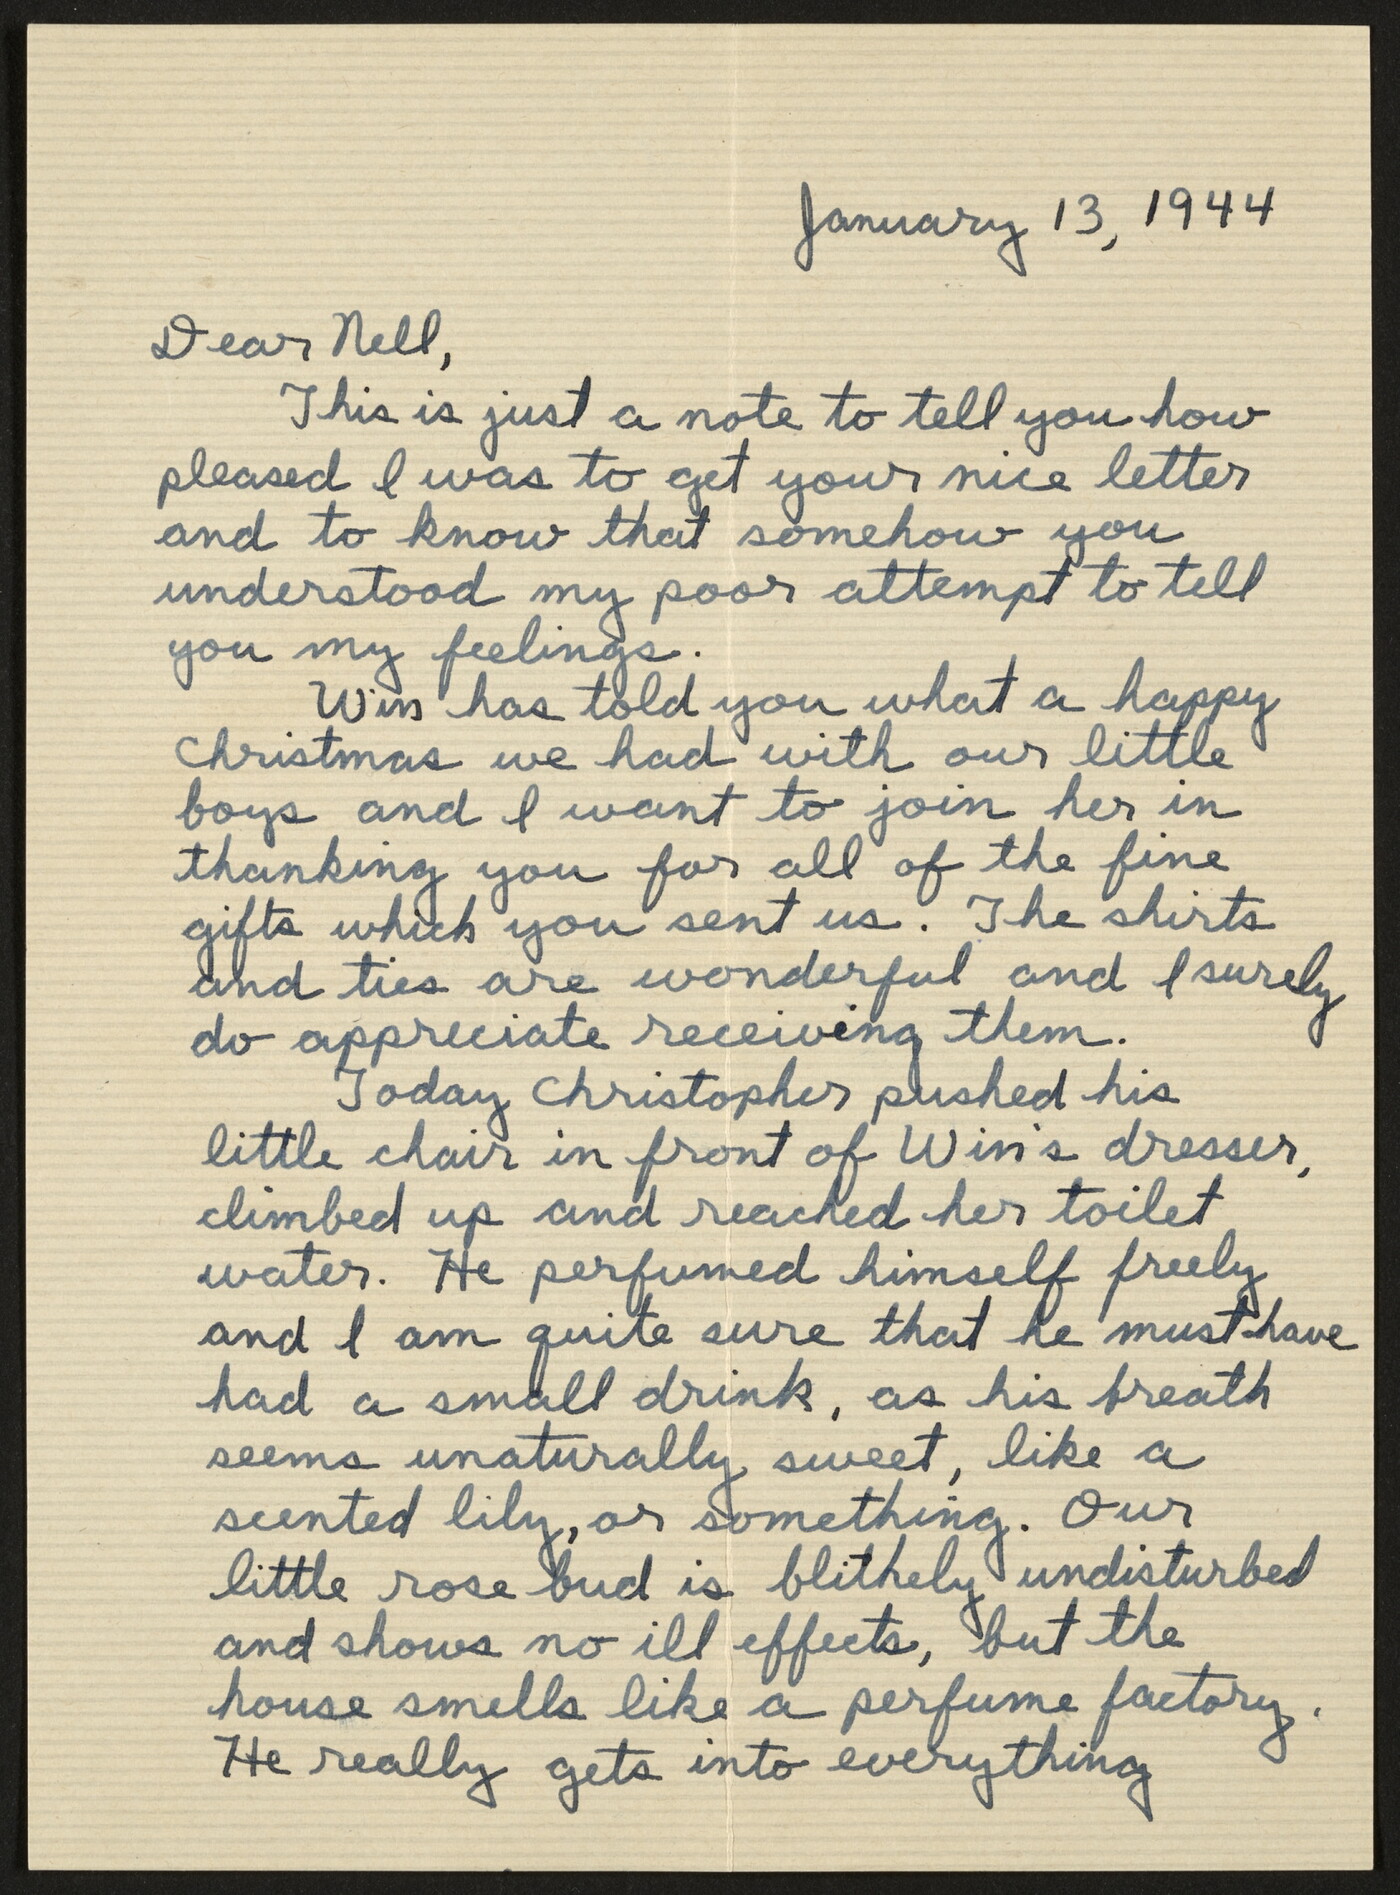 January 13, 1944
Dear Nell,
This is just a note to tell you how
pleased I was to get your nice letter
and to know that somehow you
understood my poor attempt to tell
you my feelings.
Win has told you what a happy
Christmas we had with our little
boys and I want to join her in
thanking you for all of the fine
gifts which you sent us. The shirts
and ties are wonderful and I surely
do appreciate receiving them.
Today Christopher pushed his
little chair in front of Win's dresser,
climbed up and reached her toilet
water. He perfumed himself freely
and I am quite sure that he must have
had a small drink, as his breath
seems unaturally sweet, like a
scented lily, or something. Our
little rose bud is blithely undisturbed
and shows no ill effects, but the
house smells like a perfume factory.
He really gets into everything